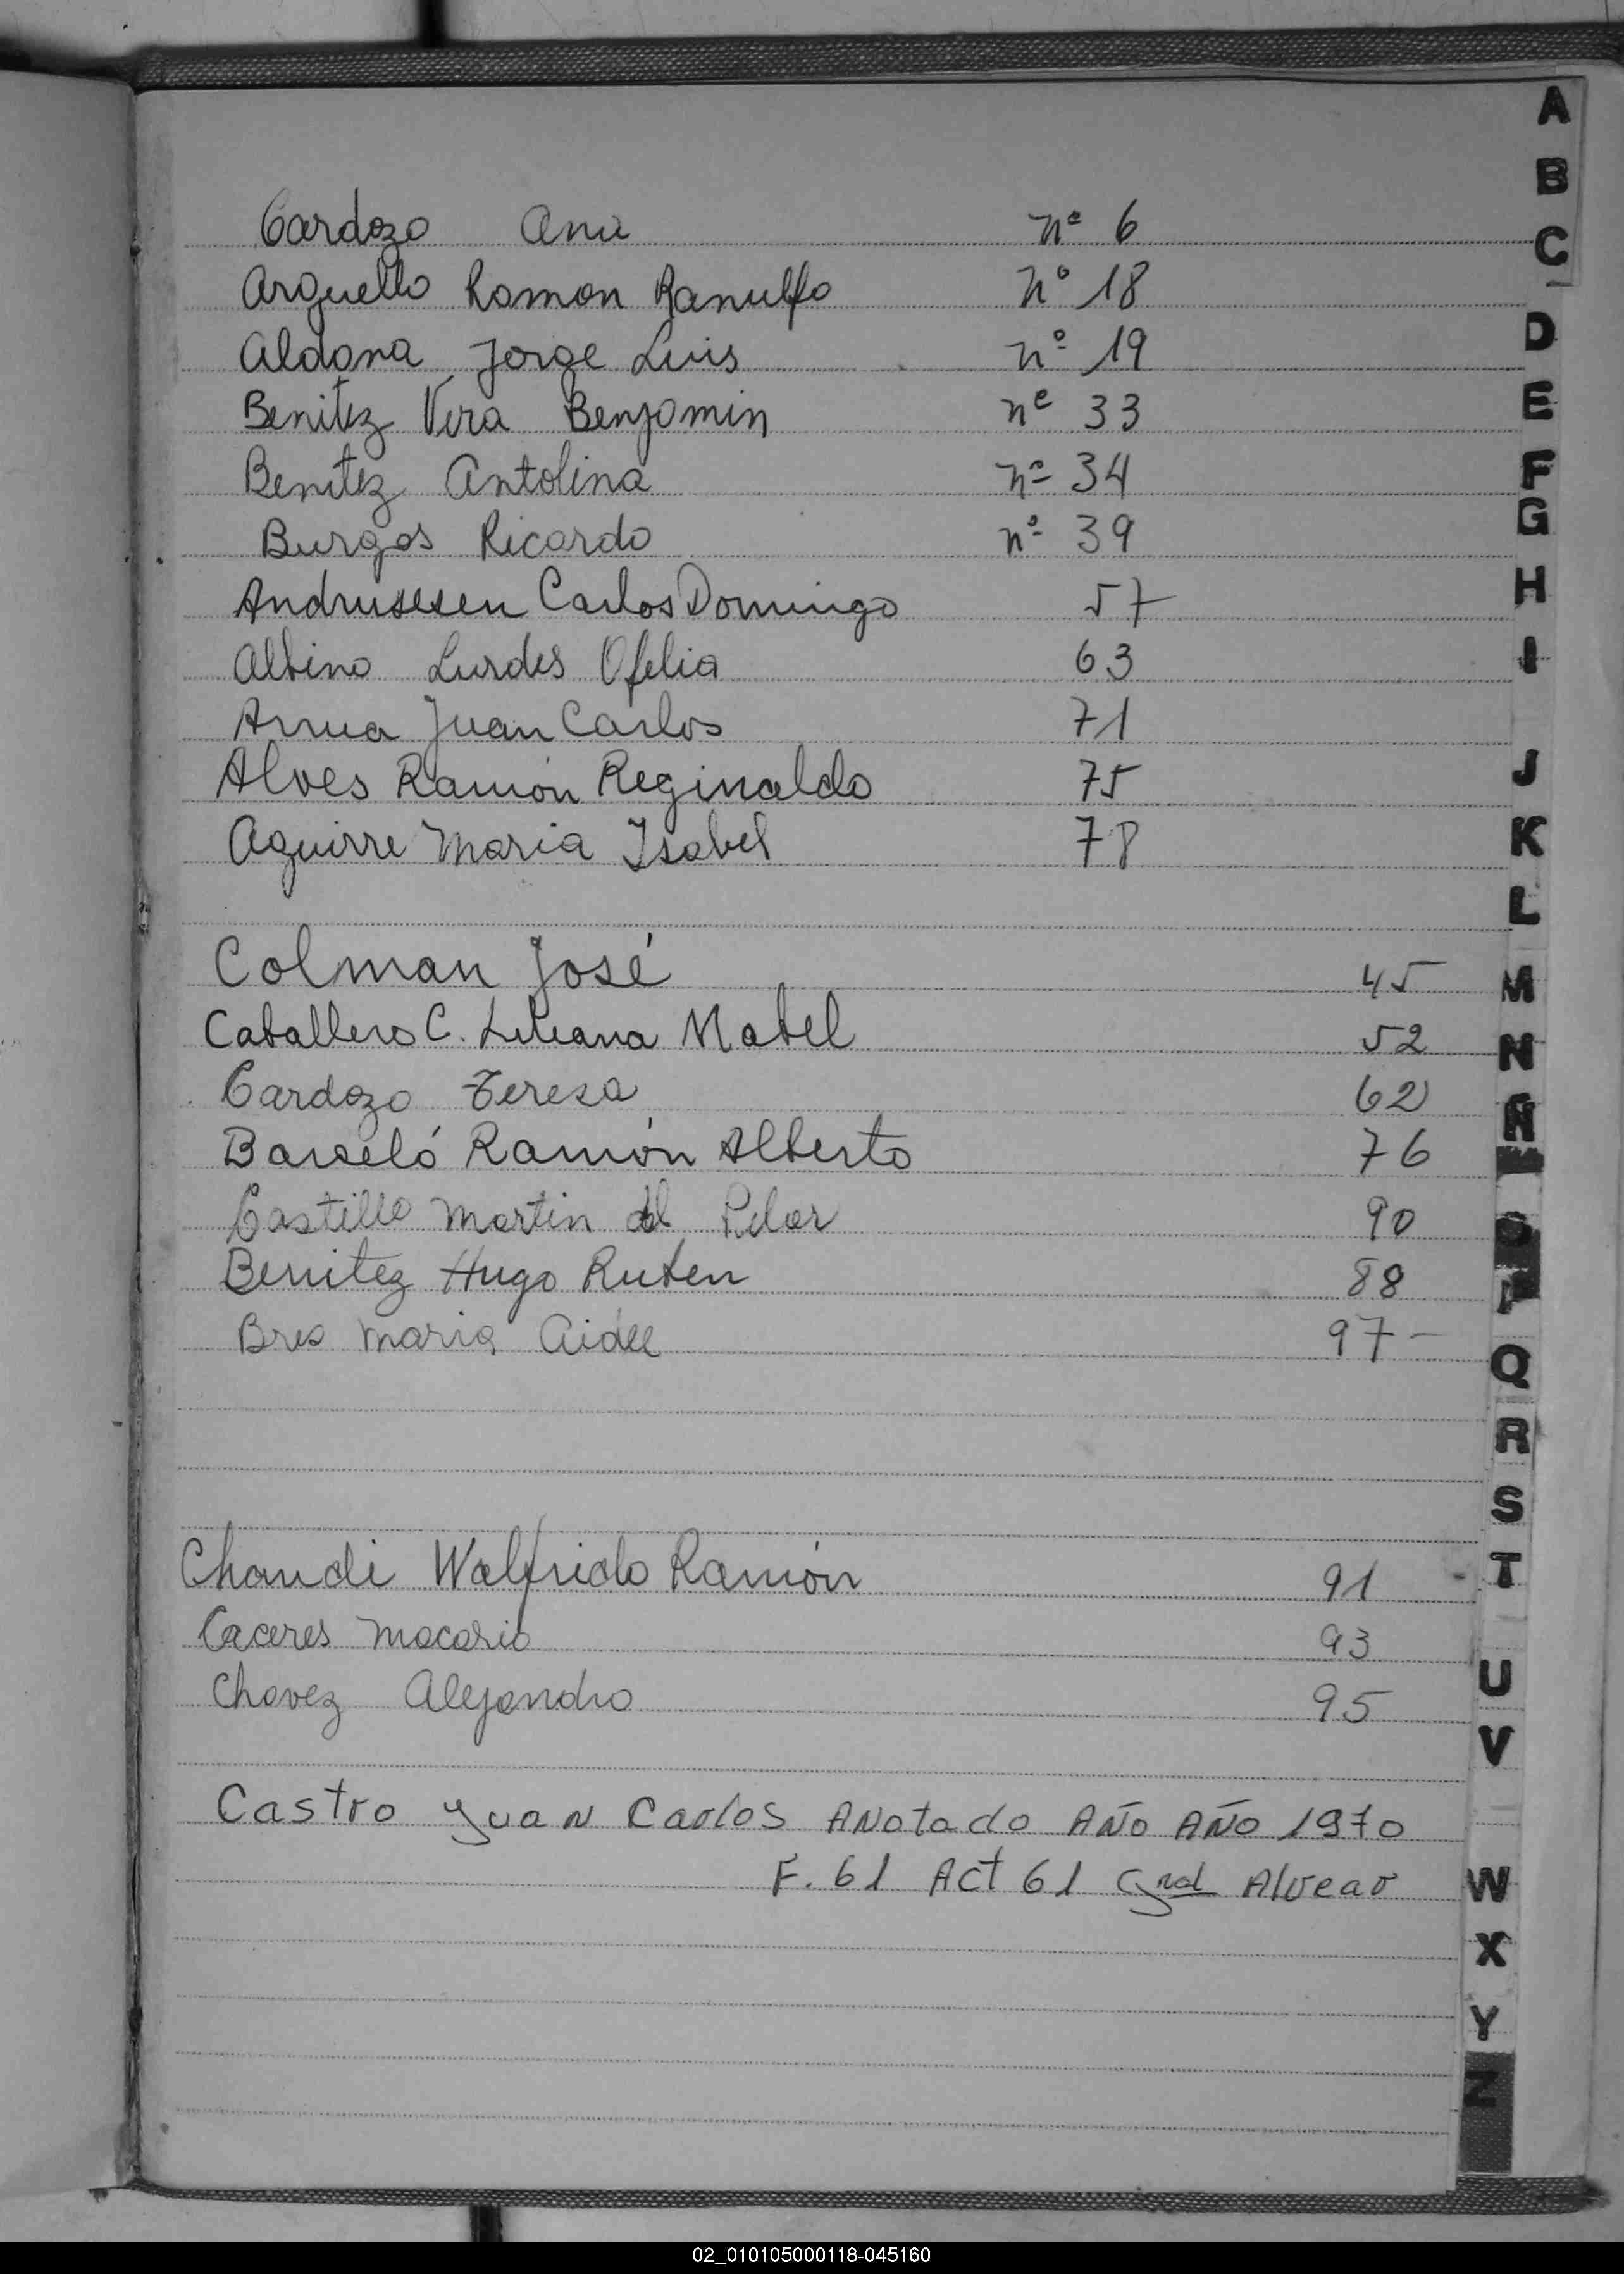 Cardozo Ana nº 6
Arguello Ramon Ranulfo nº 18
Aldana Jorge Luis nº 19
Benitez Vera Benjamin nº 33
Benitez Antolina nº 34
Burgos Ricardo nº 39
Andrusesen Carlos Domingo 57
Albino Lurdes Ofelia 63
Arrua Juan Carlos 71
Alves Ramón Reginaldo 75
Aguirre Maria Isabel 78
Colman José 45
Caballero C. Liliana Mabel 52
Cardozo Teresa 62
Barceló Ramón Alberto 76
Castillo Martin del Pilar 90
Benitez Hugo Ruben 88
Bres Maria Aidee 97-
Chaudi Walfrido Ramón 91
Caceres Macario 93
Chavez Alejandro 95
Castro Juan Carlos Anotado AÑO AÑO 1970
F. 61 Act 61 Gral Alvear
A
B
C
D
E
F
G
H
I
J
K
L
M
N
Ñ
O
P
Q
R
S
T
U
V
W
X
Y
Z
02_010105000118-045160